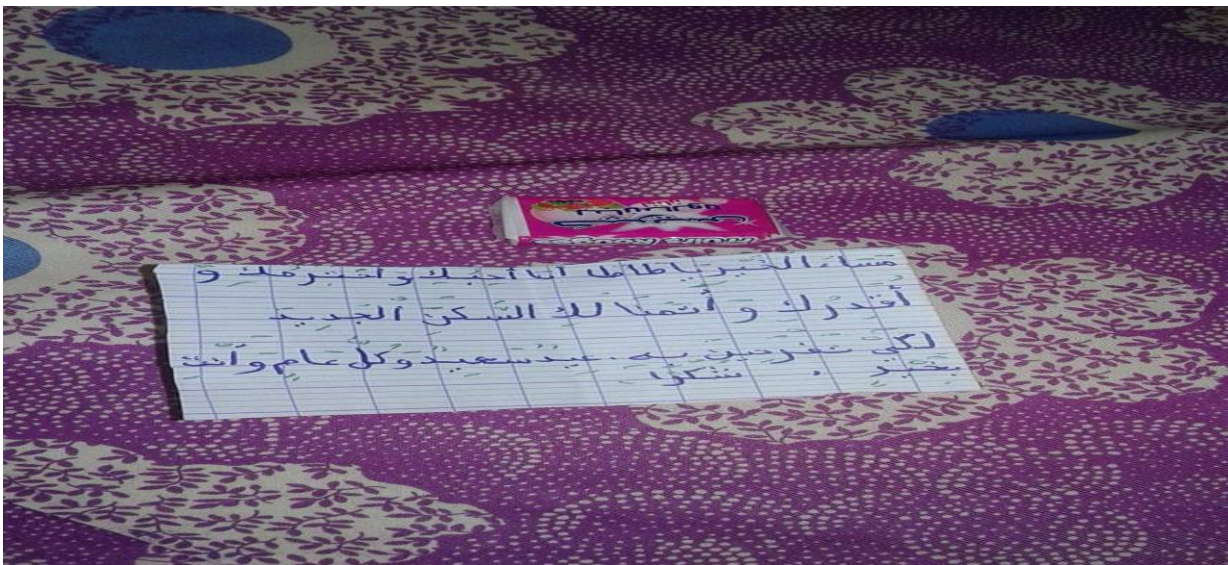 مساء الخَيْر يا طاطا أنا أُحِبُّكِ و أَحْتَرِمُكِ و
أُقَدِرُكِ و أَتمنا لكِ السَّكَنَ الْجَدِيدَ
لِكَيْ تَفْرَحِينَ بِهِ. عِيدٌ سَعِيدٌ وَ كُلُّ عَامٍ وَ أَنْتِ
بِخَيْرٍ. شكرا